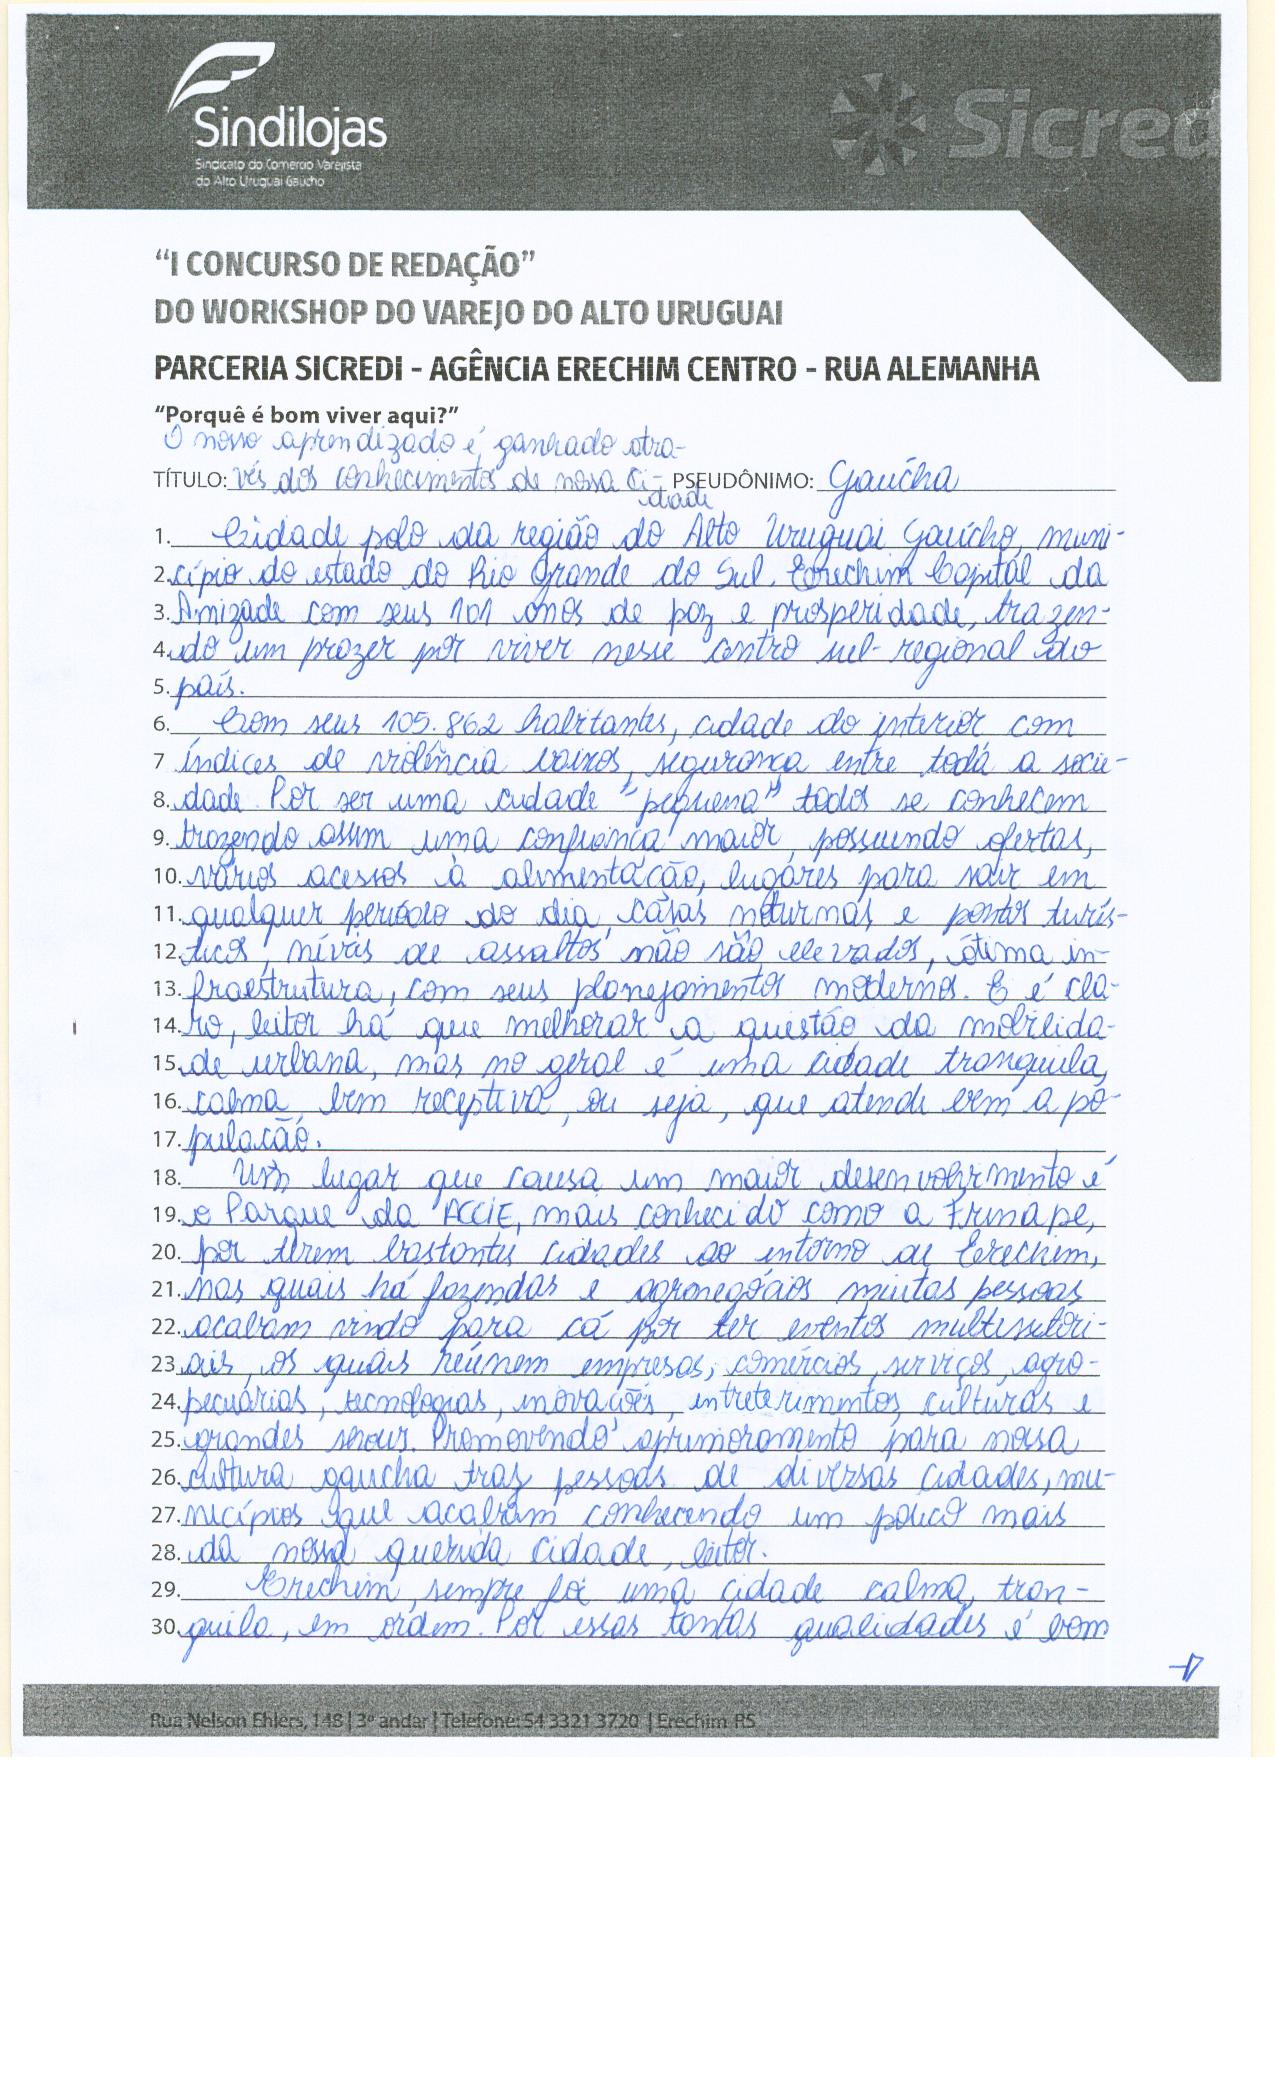 Sindilojas
Sindicato do Comércio Varejista
do Alto Uruguai Gaúcho
Sicred
"I CONCURSO DE REDAÇÃO"
DO WORKSHOP DO VAREJO DO ALTO URUGUAI
PARCERIA SICREDI - AGÊNCIA ERECHIM CENTRO - RUA ALEMANHA
"Porquê é bom viver aqui?"
O nosso aprendizado é ganhado atra-
TÍTULO: vés dos conhecimentos de nossa ci- PSEUDÔNIMO: Gaúcha
dade
1. Cidade polo da região do Alto Uruguai Gaúcho, muni-
2. cípio do estado do Rio Grande do Sul. Erechim Capital da
3. Amizade com seus 101 anos de paz e prosperidade, trazen-
4. do um prazer por viver nesse centro sul-regional do
5. país.
6. Com seus 105.862 habitantes, cidade do interior com
7 índices de violência baixos, segurança entre toda a socie-
8. dade. Por ser uma cidade "pequena" todos se conhecem
9. trazendo assim uma confiança maior, possuindo ofertas,
10. vários acessos à alimentação, lugares para sair em
11. qualquer período do dia, casas noturnas, e pontos turís-
12. ticos, níveis de assaltos não são elevados, ótima in-
13. fraestrutura, com seus planejamentos modernos. E é cla-
14. ro, leitor há que melhorar a questão da mobilida-
15. de urbana, mas no geral é uma cidade tranquila,
16. calma, bem receptiva, ou seja, que atende bem a po-
17. pulação.
18. Um lugar que causa um maior desenvolvimento é
19. o Parque da ACCIE, mais conhecido como a Frinape,
20. por terem bastantes cidades ao entorno de Erechim,
21. nas quais há fazendas e agronegócios muitas pessoas
22. acabam vindo para cá por ter eventos multissetori-
23. ais, os quais reúnem empresas, comércios, serviços, agro-
24. pecuárias, tecnologias, inovações, entreterimentos, culturas e
25. grandes shows. Promovendo aprimoramento para nossa
26. cultura gaucha traz pessoas de diversas cidades, mu-
27. nicípios que acabam conhecendo um pouco mais
28. da nossa querida cidade, leitor.
29. Erechim, sempre foi uma cidade calma, tran-
30. quila, em ordem. Por essas tantas qualidades é bom
Rua Nelson Ehlers, 148 | 3º andar | Telefone: 54 3321 3720 | Erechim-RS